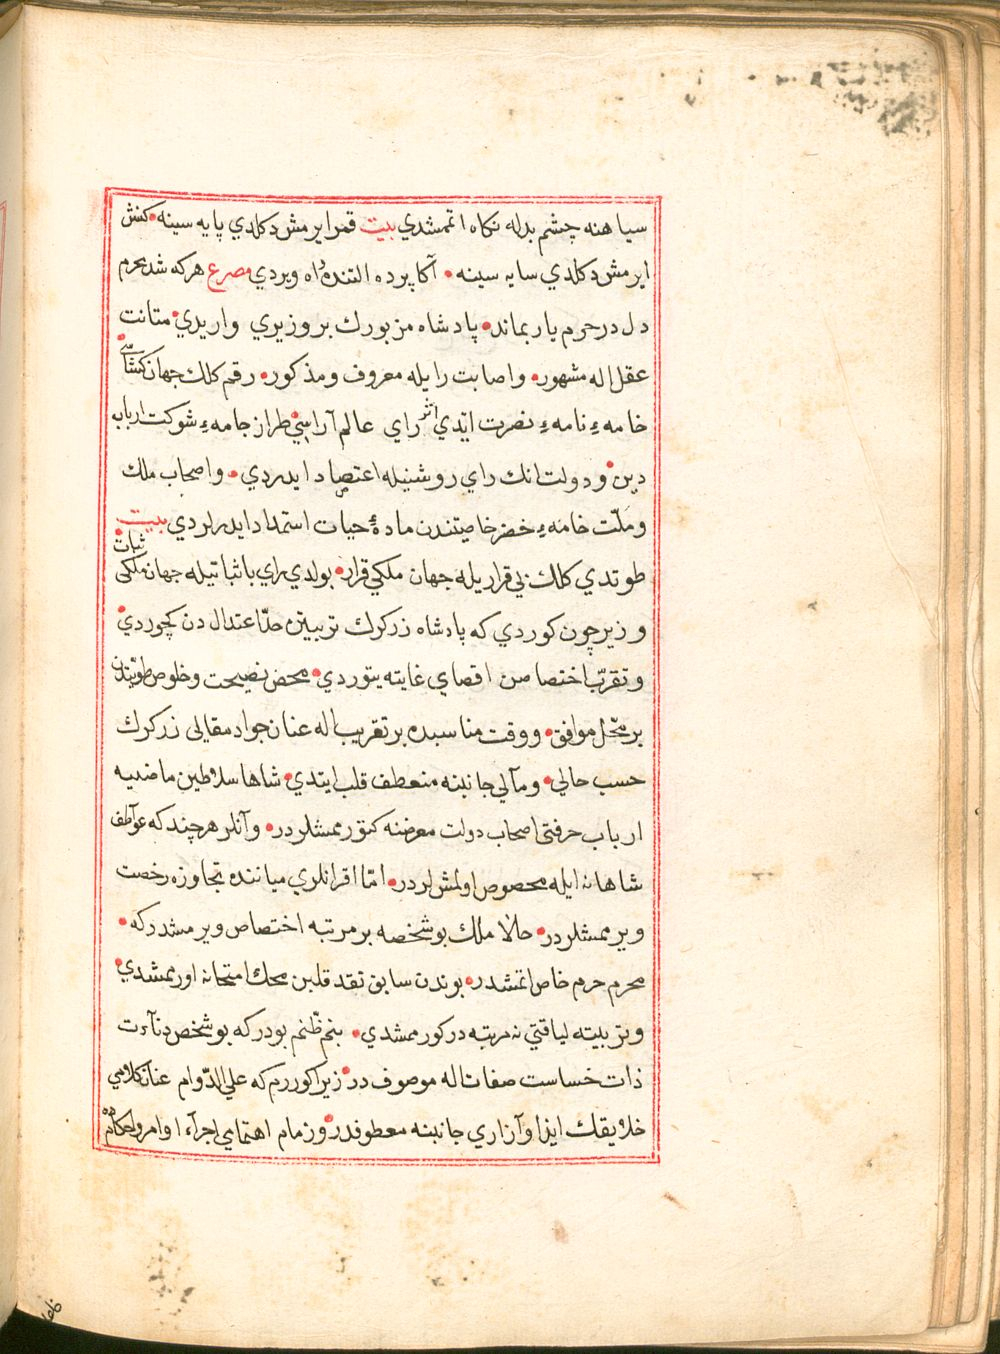 سیاهنه چشم بدله نكاه اتممشدي بيت قمر ايرمش دكلدي پايه سينه • كنش
ايرمش دكلدي سايه سينه • آكا پرده التنده راه ويردي مصرع هركه شد محرم
دل در حرم يار بماند • پادشاه مزبورك بر وزيري واريدي • متانت
عقل اله مشهور • واصابت رايله معروف ومذكور • رقم كلك جهان كشاسي •
خامهء نامهء نصرت ايدي اثر راي عالم آراسي • طراز جامهء شوكت ارباب
دين • ودولت انك راي روشنيله اعتضاد ايدردي • واصحاب ملك
وملّت خامهء خضر خاصيتندن مادهٔ حيات استمداد ايدرلردي بيت
طوتدي كلك بي قراريله جهان ملكي قرار • بولدي راي با ثباتيله جهان ملكى ثبات •
وزير چون كوردي كه پادشاه زركرك تربيتن حدّ اعتدال دن كچوردي •
وتقرّب اختصاصن اقصاي غايته يتوردي • محض نصيحت وخلوص طويتدن
بر محّل موافق • ووقت مناسبده بر تقريب اله عنان جواد مقالى زركرك
حسب حالي • ومآلي جانبنه منعطف قلب ايتدي • شاها سلاطين ماضيه
ارباب حرفتى اصحاب دولت معرضنه كتورممشلردر • وآنلر هر چند كه عوآطف
شاهانه ايله مخصوص اولمش لردر • امّا اقرانلري ميانندە تجاوزه رخصت
ويرممشلردر • حالا ملك بو شخصه بر مرتبه اختصاص ويرمشدركه •
محرم حرم خاص اتمشدر • بوندن سابق نقد قلبن محك امتحانه اورممشدي •
وتربيته لياقتي نه مرتبه در كورممشدي • بنم ظّنم بودركه بو شخص دنآءت
ذات خساست صفات اله موصوف در • زيرا كوررم كه علي الدّوام عنان كلامي
خلايقك ايذا وآزاري جانبنه معطوفدر • وزمام اهتمامي اجرآء اوامر واحكامڭ